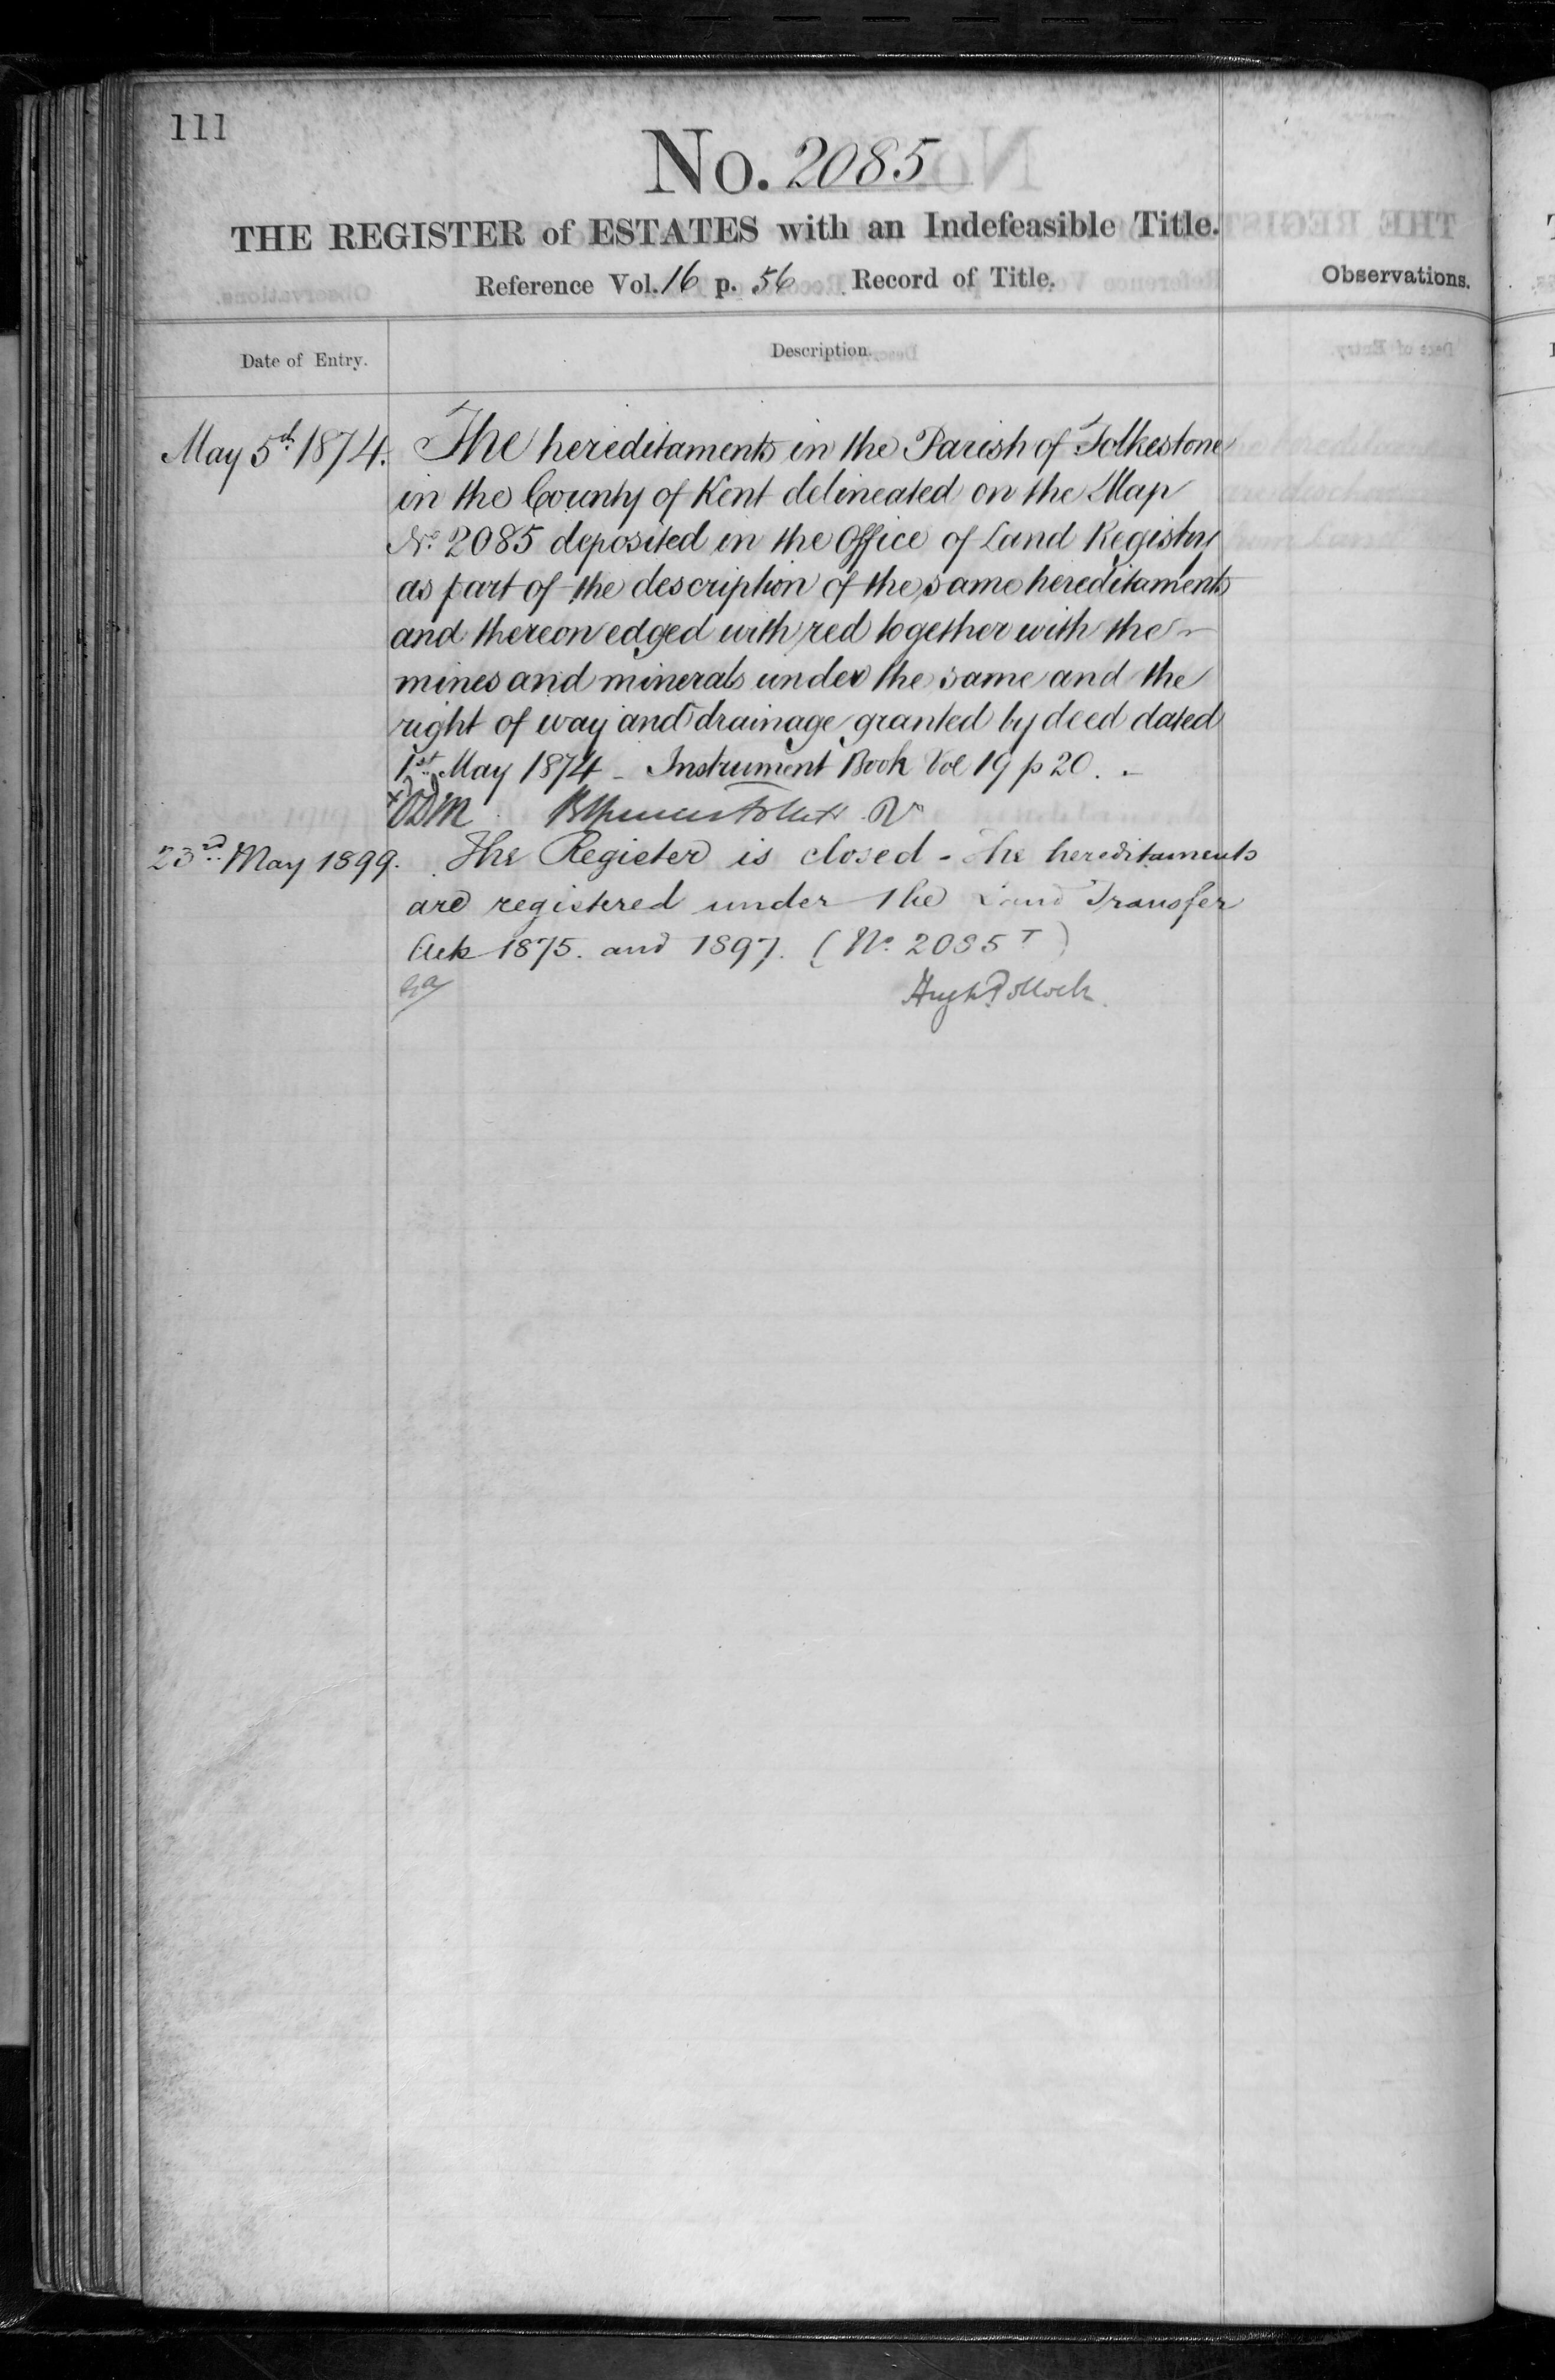 111
No. 2085
THE REGISTER of ESTATES with an Indefeasible Title.
Reference Vol. 16 p. 56 Record of Title.
Observations.
Date of Entry.
Description.
May 5th 1874. The hereditaments in the Parish of Folkestone
in the County of Kent delineated on the Map
No. 2085 deposited in the Office of Land Registry
as part of the description of the same hereditaments
and thereon edged with red together with the
mines and minerals under the same and the
right of way and drainage granted by deed dated
1st May 1874 - Instrument Book Vol 19 p 20. -
23rd May 1899. The Register is closed - The hereditaments
are registered under the Land Transfer
Acts 1875. and 1897. (No. 2085 T)
Hugh Pollock.